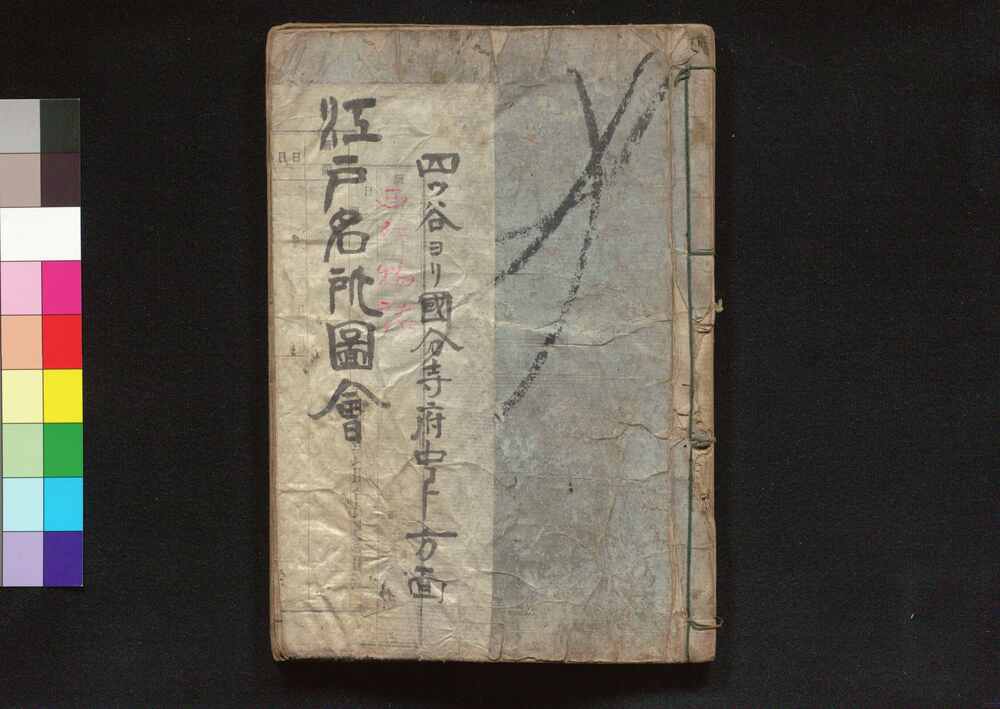 四ツ谷ヨリ國分寺府中ト方面
江戸名所圖會